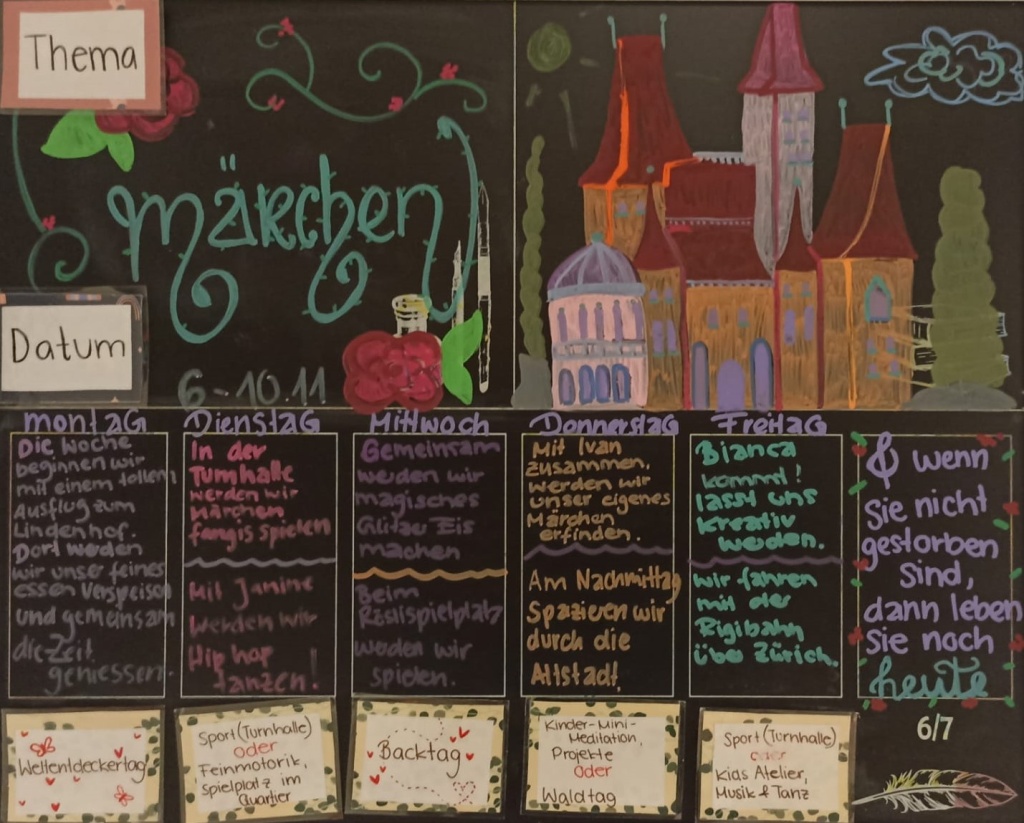 Thema
märchen
Datum
6-10.11
montag
Die Woche
beginnen wir
mit einem tollen
Ausflug zum
Lindenhof.
Dort werden
wir unser feines
essen verspeisen
und gemeinsam
die Zeit
geniessen.
Dienstag
In der
Turnhalle
werden wir
Märchen
fangis spielen
Mit Janine
werden wir
Hip hop
tanzen!
Mittwoch
Gemeinsam
werden wir
magisches
Glitzer Eis
machen
Beim
Röslispielplatz
werden wir
spielen.
Donnerstag
Mit Ivan
zusammen,
werden wir
unser eigenes
Märchen
erfinden.
Am Nachmittag
Spazieren wir
durch die
Altstadt.
Freitag
Bianca
kommt!
lasst uns
kreativ
werden.
wir fahren
mit der
Rigibahn
über Zürich.
& wenn
sie nicht
gestorben
sind,
dann leben
sie noch
heute
6/7
Weltentdeckertag
Sport (Turnhalle)
oder
Feinmotorik,
Spielplatz im
Quartier
Backtag
Kinder-Mini-
Meditation,
Projekte
Oder
Waldtag
Sport (Turnhalle)
oder
Kids Atelier,
Musik & Tanz